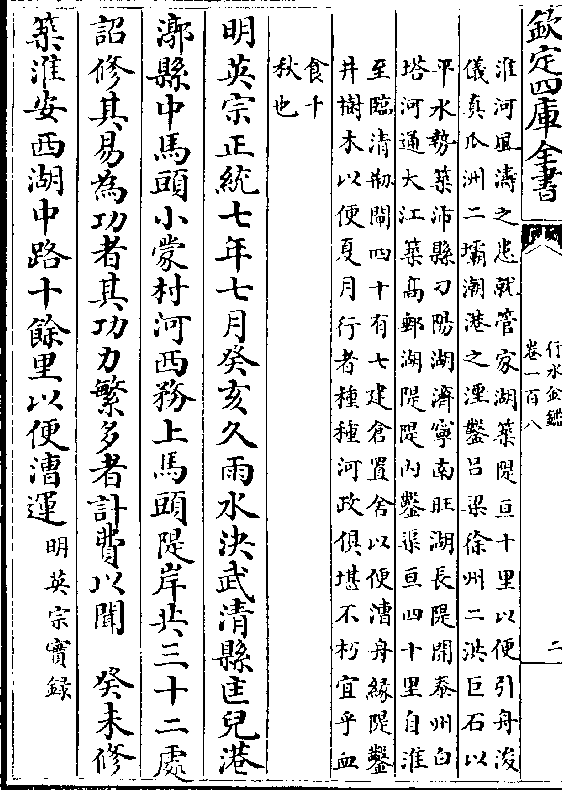 欽定四庫全書
行水金鑑
卷一百八
二
淮河風濤之患就管家湖築隄亘十里以便引舟浚
儀真瓜洲二壩潮港之湮鑿呂梁徐州二洪巨石以
平水勢築沛縣刁陽湖濟寧南旺湖長隄開泰州白
塔河通大江築高郵湖隄隄內鑿渠亘四十里自淮
至臨清剏閘四十有七建倉置舍以便漕舟緣隄鑿
井樹木以便夏月行者種種河政俱堪不朽宜乎血
食千
秋也
明英宗正統七年七月癸亥久雨水決武清縣匡兒港
漷縣中馬頭小蒙村河西務上馬頭隄岸共三十二處
詔修其易為功者其功力繁多者計費以聞 癸未修
築淮安西湖中路十餘里以便漕運明英宗實録